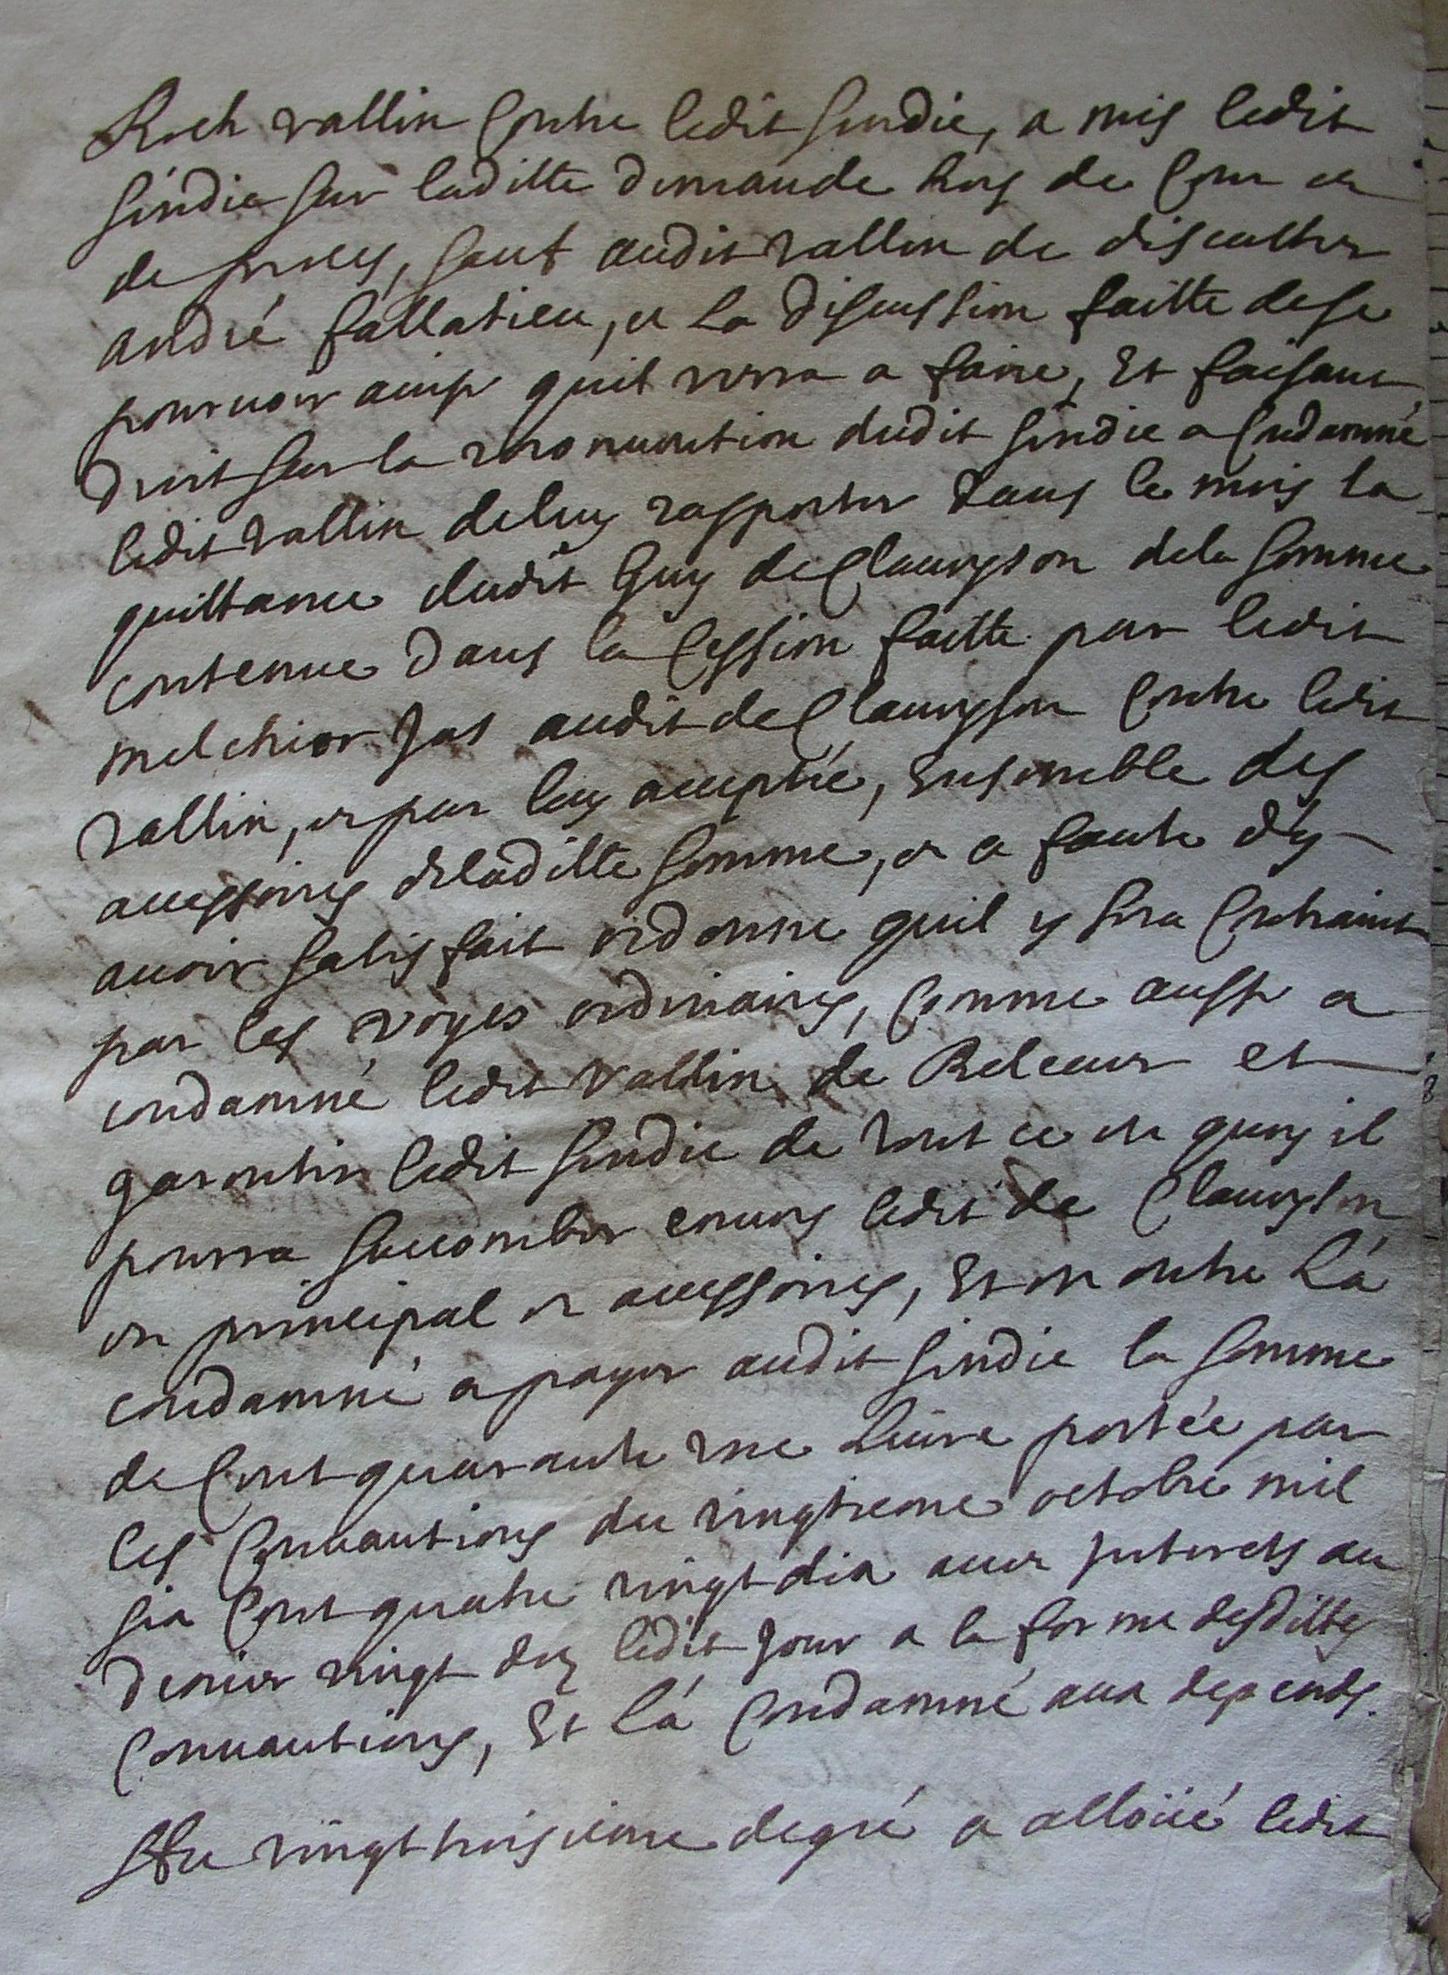 Roch vallin Contre ledit sindic, a mis ledit
sindic sur laditte demande hors de Cour et
de proces, sauf audit vallin de discutter
andré fallatieu, et la discussion faitte de se
pourvoir ainsy quil verra a faire, Et faisant
droit sur la reconvention dudit sindic a Condamné
ledit vallin de luy rapporter dans le mois la
quittance dudit Guy de Claveyson de la somme
contenue dans la Cession faitte par ledit
melchior Jas audit de Claveyson Contre ledit
vallin, et par luy acceptée, Ensemble des
accessoires de laditte somme, et a faute d'y
avoir satisfait ordonne quil y sera Contraint
par les voyes ordinaires, Comme aussy a
condamné ledit vallin de Relever et
garentir ledit sindic de tout ce en quoy il
pourra succomber envers ledit de Claveyson
en principal et accessoires, Et en outre L'a
condamné a payer audit sindic la somme
de Cent quarante une Livre portée par
les Conventions du vingtieme octobre mil
six Cent quatre vingt dix avec Interets au
denier vingt dez ledit Jour a la forme desdittes
Conventions, Et L'a Condamné aux depends.
Au vingt troisieme degré a alloüé ledit